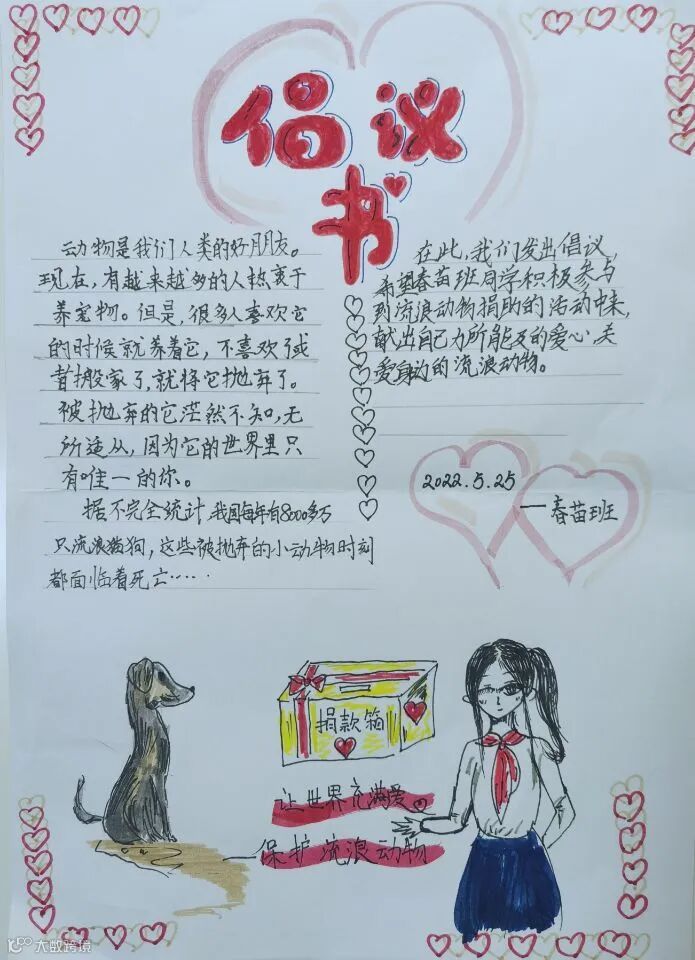 倡议
书
动物是我们人类的好朋友。
现在，有越来越多的人热衷于
养宠物。但是，很多人喜欢它
的时候就养着它，不喜欢了或
者搬家了，就将它抛弃了。
被抛弃的它茫然不知，无
所适从，因为它的世界里只
有唯一的你。
据不完全统计，我国每年有8000多万
只流浪猫狗，这些被抛弃的小动物时刻
都面临着死亡……
在此，我们发出倡议，
希望春苗班同学积极参与
到流浪动物捐助的活动中来，
献出自己力所能及的爱心，关
爱身边的流浪动物。
2022.5.25
——春苗班
捐款箱
让世界充满爱
——保护流浪动物
大数跨境